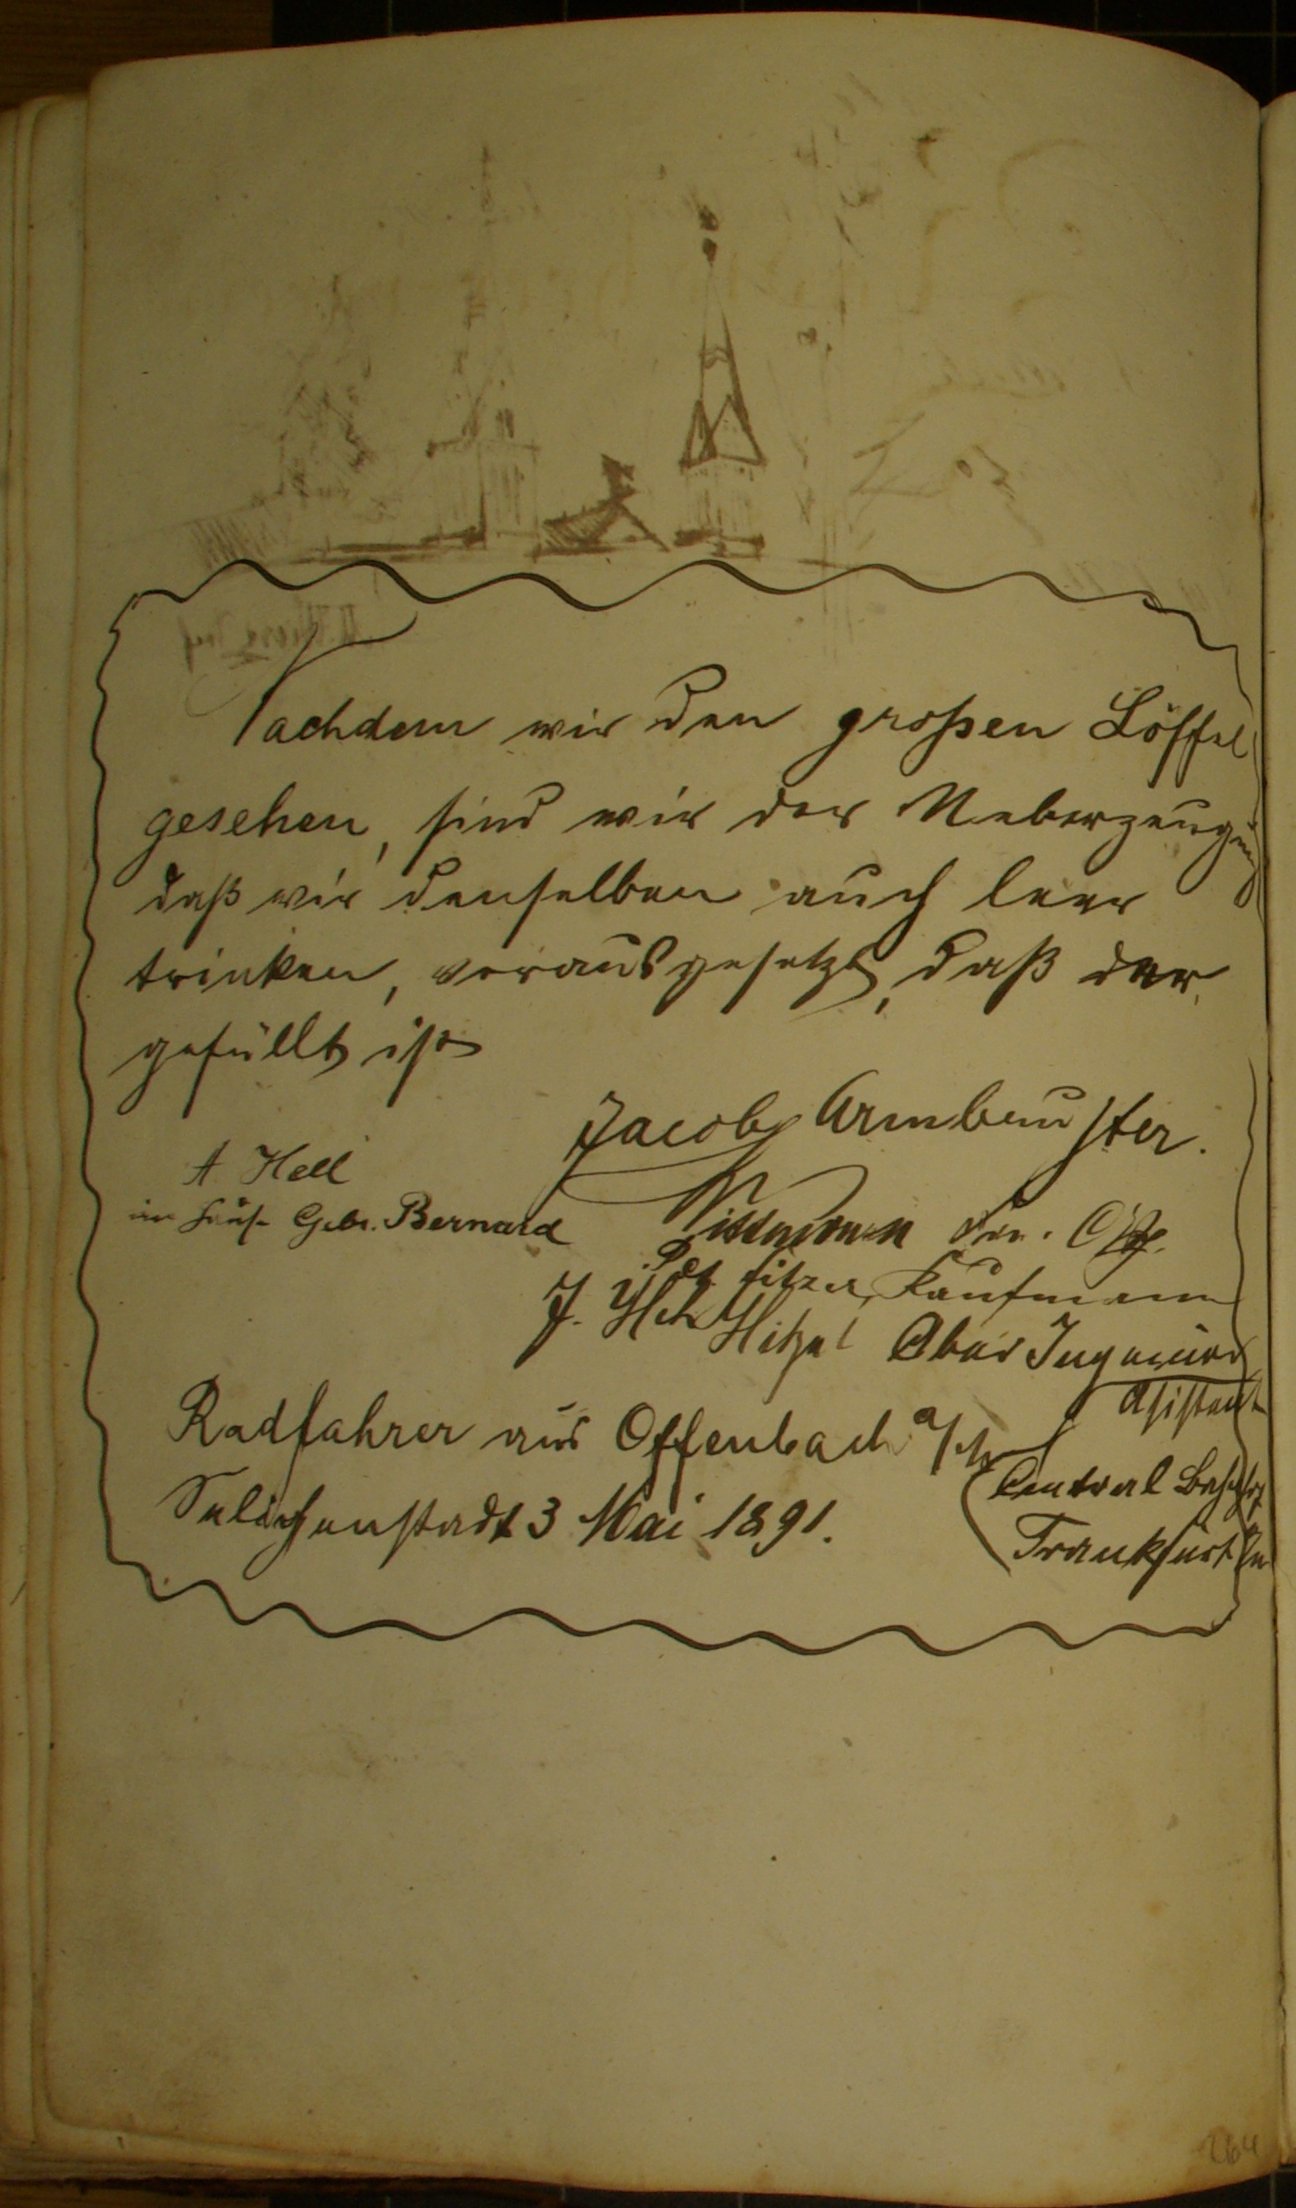 Nachdem wir den großen Löffel
gesehen, sind wir der Ueberzeugung
daß wir denselben auch leer
trinken, vorausgesetzt, daß der
gefüllt ist
Jacob Armbruster.
A. Hell
im Hause Gebr. Bernard
Kaufmann
J. Hch Hitzel Ober Ingenieur
Assistent
Radfahrer aus Offenbach a/M
Central Bahnhof
Seligenstadt 3 Mai 1891.
Frankfurt
264